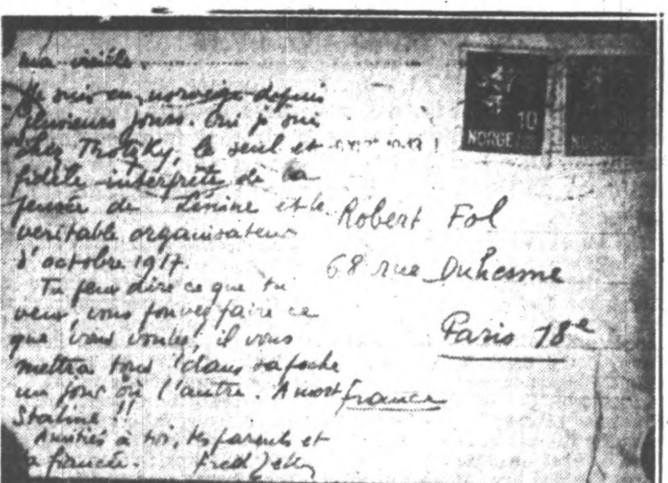 ma vieille
Je suis en norvège depuis
plusieurs jours. Oui je suis
chez Trotzky, le seul et
fidèle interprète de la
pensée de Lénine et le
veritable organisateur
d'octobre 1917.
Tu peux dire ce que tu
veux, vous pouvez faire ce
que vous voulez, il vous
mettra tous dans sa poche
un jour où l'autre. A mort
Staline !!
Amitiés à toi, tes parents et
ta fiancée. Fred Zeller
10
NORGE
NORGE
Robert Fol
68 rue Duhesme
Paris 18e
france